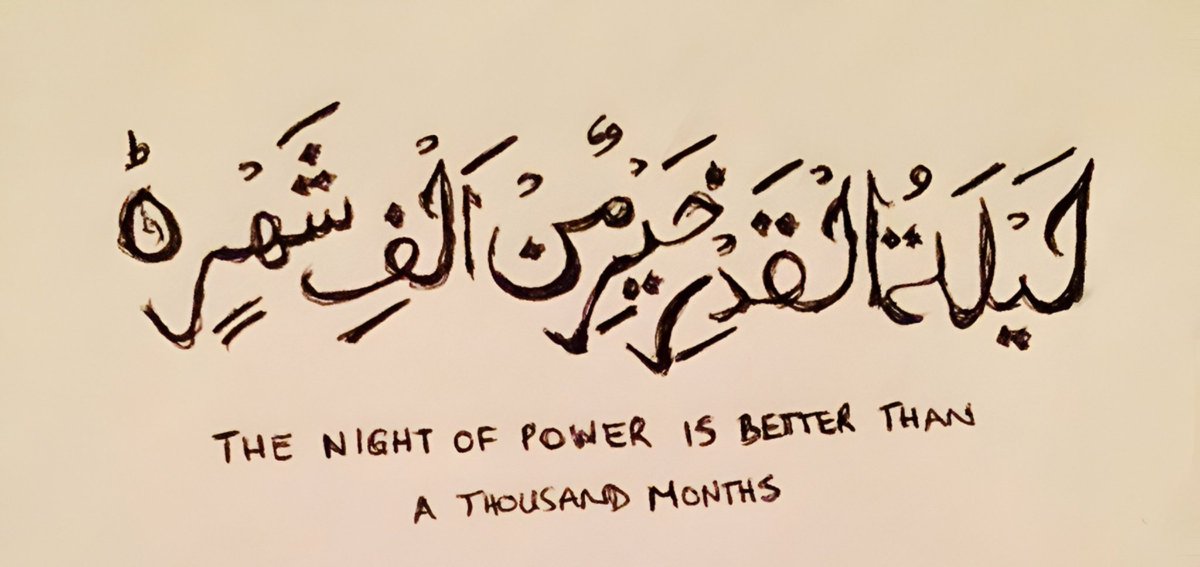 لَيْلَةُ الْقَدْرِ خَيْرٌ مِّنْ اَلْفِ شَهْرٍ ؕ ۝
THE NIGHT OF POWER IS BETTER THAN
A THOUSAND MONTHS